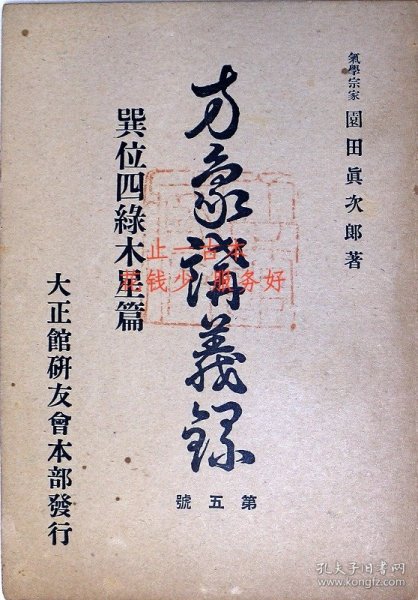 氣學宗家 園田眞次郎著
方象講義録
第五號
巽位四綠木星篇
大正館研友會本部發行
止一古本
花钱少 服务好
孔夫子旧书网